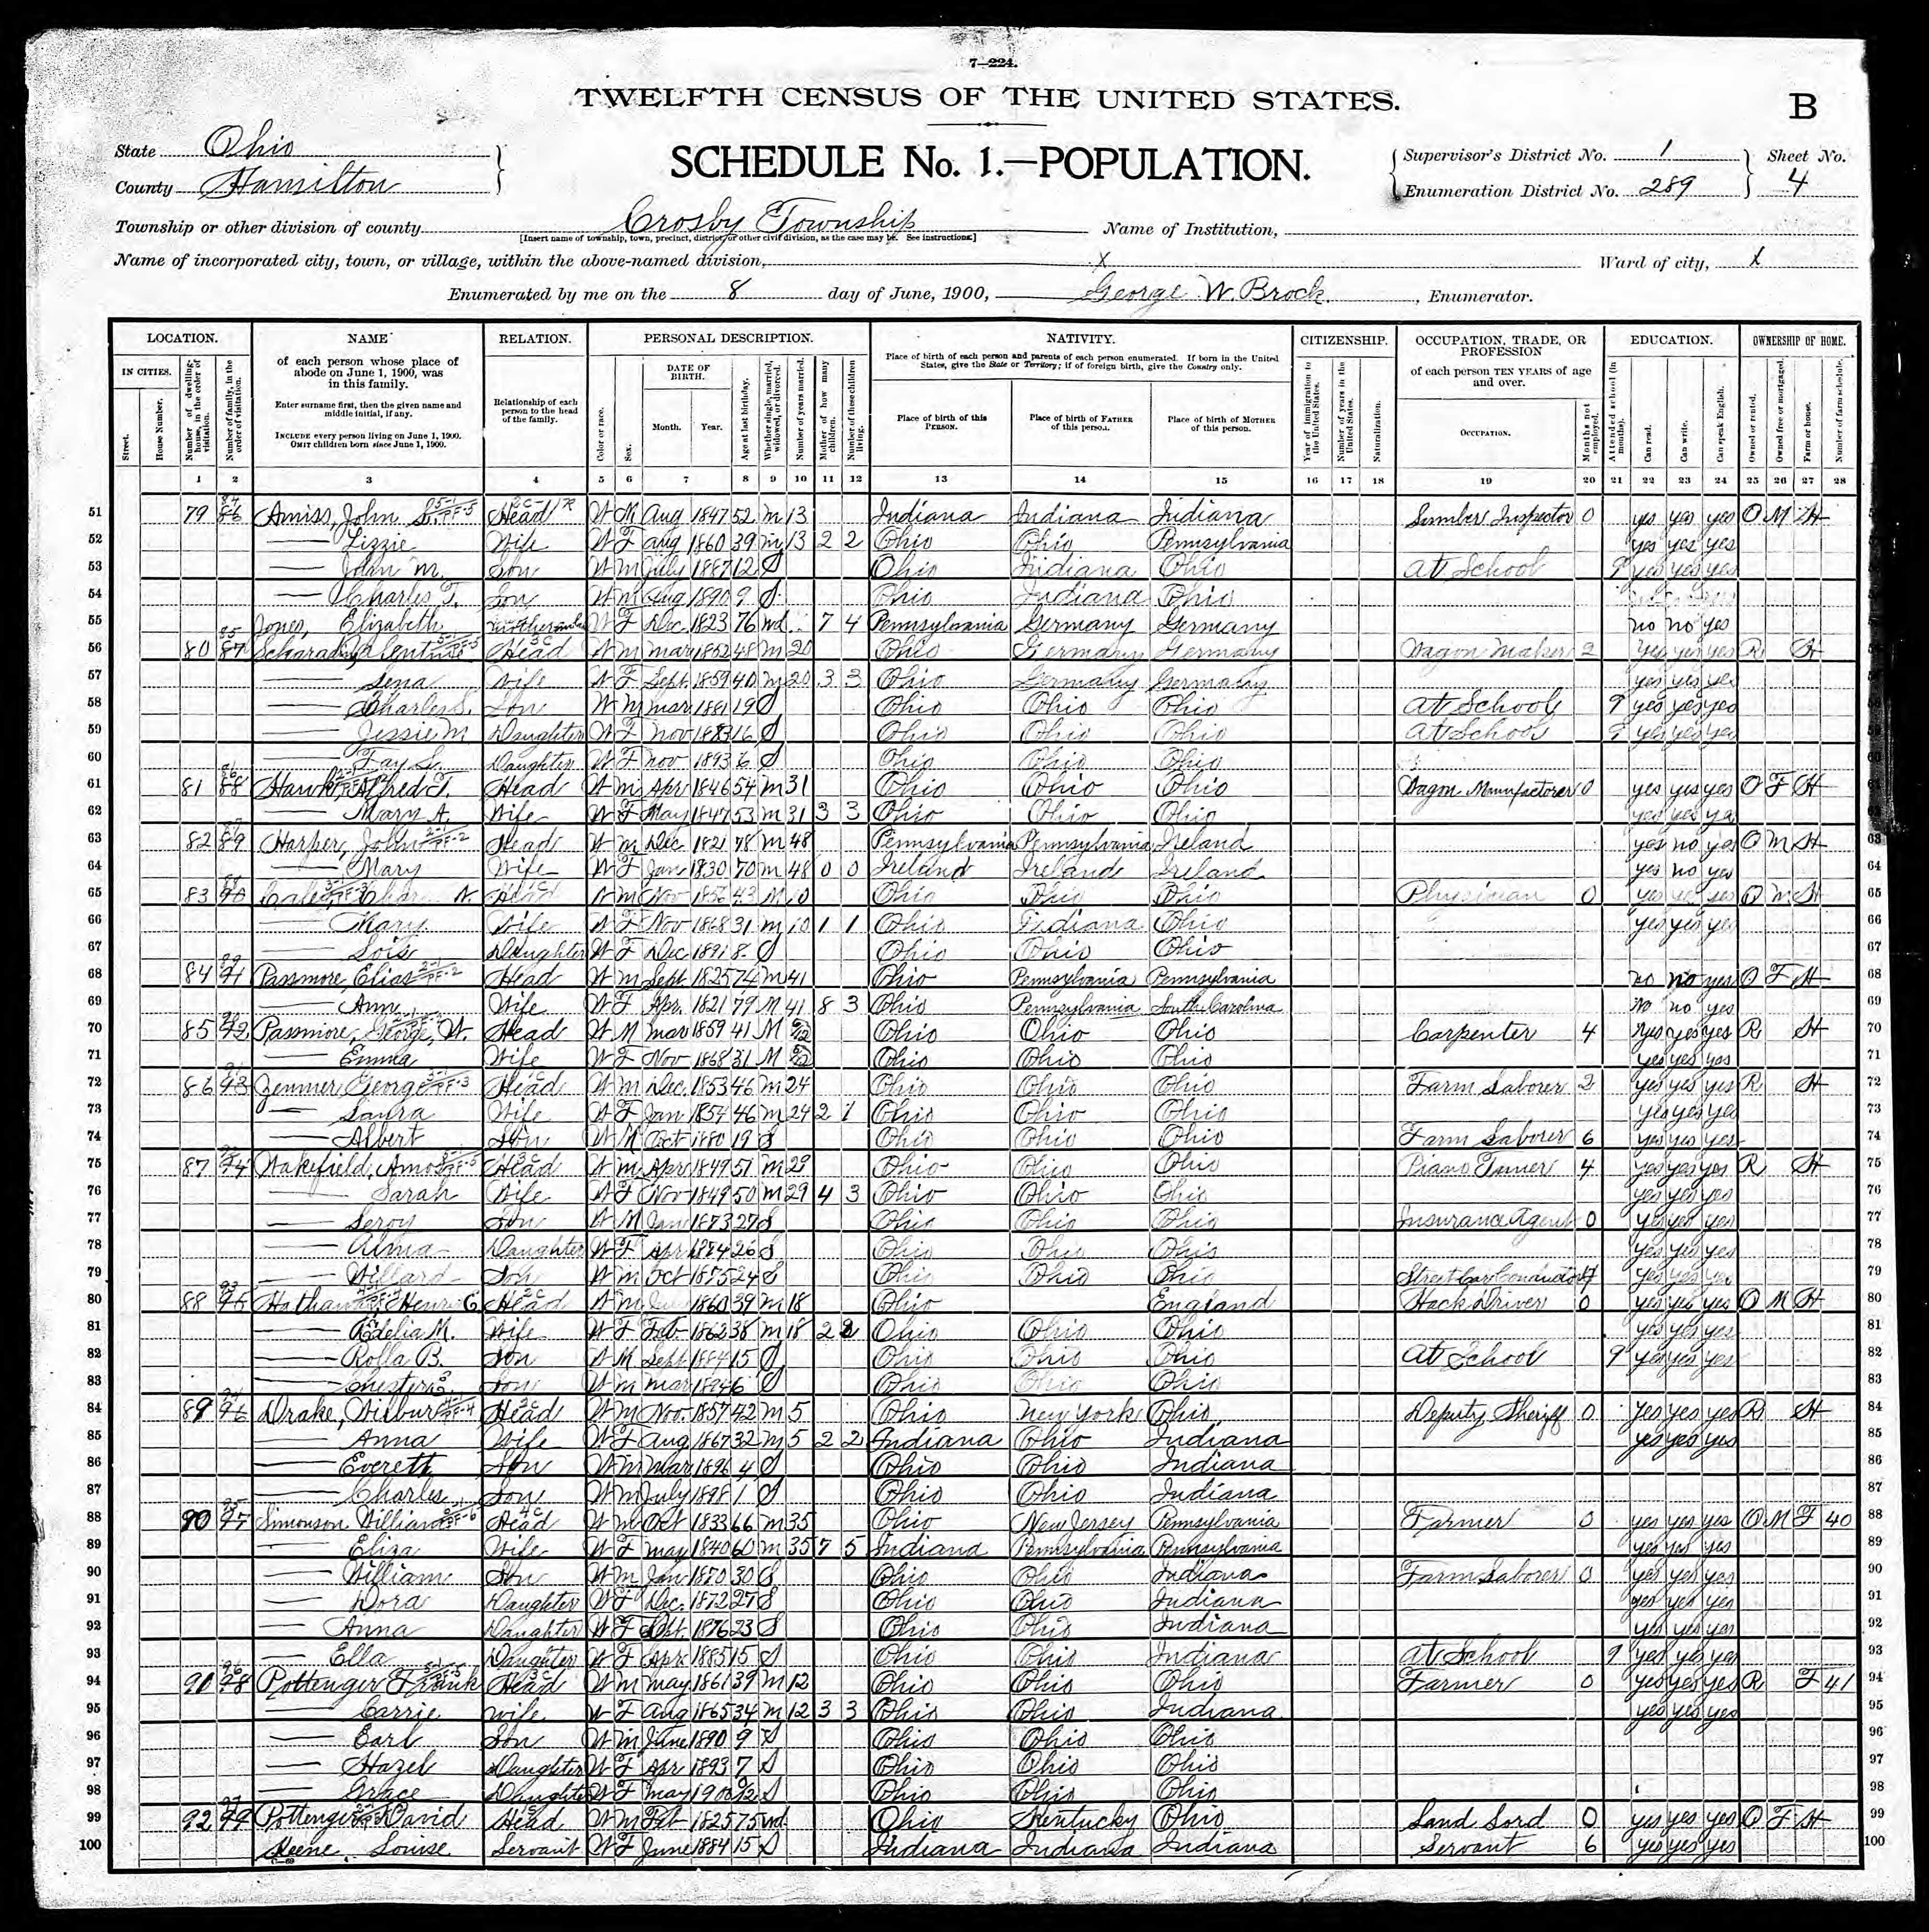 7—224.
TWELFTH CENSUS OF THE UNITED STATES.
B
State Ohio
County Hamilton
SCHEDULE No. 1.—POPULATION.
Supervisor's District No. 1
Enumeration District No. 289
Sheet No. 4
Township or other division of county Crosby Township Name of Institution,
[Insert name of township, town, precinct, district, or other civil division, as the case may be. See instructions.]
Name of incorporated city, town, or village, within the above-named division, X Ward of city, X
Enumerated by me on the 8 day of June, 1900, George W. Brock, Enumerator.
LOCATION. NAME RELATION. PERSONAL DESCRIPTION. NATIVITY. CITIZENSHIP. OCCUPATION, TRADE, OR PROFESSION EDUCATION. OWNERSHIP OF HOME.
IN CITIES. Street. House Number. Number of dwelling-house, in the order of visitation. Number of family, in the order of visitation.
of each person whose place of abode on June 1, 1900, was in this family.
Enter surname first, then the given name and middle initial, if any.
INCLUDE every person living on June 1, 1900. OMIT children born since June 1, 1900.
Relationship of each person to the head of the family.
Color or race. Sex. DATE OF BIRTH. Month. Year. Age at last birthday. Whether single, married, widowed, or divorced. Number of years married. Mother of how many children. Number of these children living.
Place of birth of each person and parents of each person enumerated. If born in the United States, give the State or Territory; if of foreign birth, give the Country only.
Place of birth of this PERSON. Place of birth of FATHER of this person. Place of birth of MOTHER of this person.
Year of immigration to the United States. Number of years in the United States. Naturalization.
of each person TEN YEARS of age and over. OCCUPATION. Months not employed.
Attended school (in months). Can read. Can write. Can speak English. Owned or rented. Owned free or mortgaged. Farm or house. Number of farm schedule.
1 2 3 4 5 6 7 8 9 10 11 12 13 14 15 16 17 18 19 20 21 22 23 24 25 26 27 28
51 79 86 Amiss, John S. Head W M Aug 1847 52 M 13 Indiana Indiana Indiana Lumber Inspector 0 yes yes yes O M H
52 — Lizzie Wife W F Aug 1860 39 M 13 2 2 Ohio Ohio Pennsylvania yes yes yes
53 — John M. Son W M July 1887 12 S Ohio Indiana Ohio At School 9 yes yes yes
54 — Charles T. Son W M Aug 1890 9 S Ohio Indiana Ohio
55 Jones, Elizabeth W F Dec. 1823 76 Wd 7 4 Pennsylvania Germany Germany no no yes
56 80 87 Head W M Mar 1852 48 M 20 Ohio Germany Germany Wagon Maker 2 yes yes yes R H
57 — Lena Wife W F Sept 1859 40 M 20 3 3 Ohio Germany Germany yes yes yes
58 — Charles S. Son W M Mar 1881 19 S Ohio Ohio Ohio At School 9 yes yes yes
59 — Jessie M Daughter W F Nov 1883 16 S Ohio Ohio Ohio At School 9 yes yes yes
60 — Fay L. Daughter W F Nov 1893 6 S Ohio Ohio Ohio
61 81 88 Alfred T. Head W M Apr 1846 54 M 31 Ohio Ohio Ohio Wagon Manufactorer 0 yes yes yes O F H
62 — Mary A. Wife W F May 1847 53 M 31 3 3 Ohio Ohio Ohio yes yes yes
63 82 89 Harper, John Head W M Dec 1821 78 M 48 Pennsylvania Pennsylvania Ireland yes no yes O M H
64 — Mary Wife W F Jan 1830 70 M 48 0 0 Ireland Ireland Ireland yes no yes
65 83 90 Head W M Nov 1856 43 M 10 Ohio Ohio Ohio Physician 0 yes yes yes O M H
66 — Mary Wife W F Nov 1868 31 M 10 1 1 Ohio Indiana Ohio yes yes yes
67 — Lois Daughter W F Dec 1891 8 S Ohio Ohio Ohio
68 84 91 Passmore, Elias Head W M Sept 1825 74 M 41 Ohio Pennsylvania Pennsylvania no no yes O F H
69 — Ann Wife W F Apr. 1821 79 M 41 8 3 Ohio Pennsylvania South Carolina No no yes
70 85 92 Passmore, George, W. Head W M Mar 1859 41 M Ohio Ohio Ohio Carpenter 4 yes yes yes R H
71 — Emma Wife W F Nov 1868 31 M Ohio Ohio Ohio yes yes yes
72 86 93 Zenmer George Head W M Dec. 1853 46 M 24 Ohio Ohio Ohio Farm Laborer 2 yes yes yes R H
73 — Laura Wife W F Jan 1854 46 M 24 2 1 Ohio Ohio Ohio yes yes yes
74 — Albert Son W M Oct 1880 19 S Ohio Ohio Ohio Farm Laborer 6 yes yes yes
75 87 94 Wakefield, Amos Head W M Apr 1849 51 M 29 Ohio Ohio Ohio Piano Tuner 4 yes yes yes R H
76 — Sarah Wife W F Nov 1849 50 M 29 4 3 Ohio Ohio Ohio yes yes yes
77 — Leroy Son W M Jan 1873 27 S Ohio Ohio Ohio Insurance Agent 0 yes yes yes
78 — Alma Daughter W F Apr 1874 26 S Ohio Ohio Ohio yes yes yes
79 — Willard Son W M Oct 1875 24 S Ohio Ohio Ohio Street Car Conductor yes yes yes
80 88 95 Henri G Head W M 1860 39 M 18 Ohio England Hack Driver 0 yes yes yes O M H
81 — Adelia M. Wife W F Feb 1862 38 M 18 2 2 Ohio Ohio Ohio yes yes yes
82 — Rolla B. Son W M Sept 1884 15 S Ohio Ohio Ohio At School 9 yes yes yes
83 — Chester Son W M Mar 1894 6 S Ohio Ohio Ohio
84 89 96 Drake, Wilbur Head W M Nov. 1857 42 M 5 Ohio New York Ohio Deputy Sheriff 0 yes yes yes R H
85 — Anna Wife W F Aug 1867 32 M 5 2 2 Indiana Ohio Indiana yes yes yes
86 — Everett Son W M Mar 1896 4 S Ohio Ohio Indiana
87 — Charles Son W M July 1898 1 S Ohio Ohio Indiana
88 90 97 Simonson William Head W M Oct 1833 66 M 35 Ohio New Jersey Pennsylvania Farmer 0 yes yes yes O M F 40
89 — Eliza Wife W F May 1840 60 M 35 7 5 Indiana Pennsylvania Pennsylvania yes yes yes
90 — William Son W M Jan 1870 30 S Ohio Ohio Indiana Farm Laborer 0 yes yes yes
91 — Dora Daughter W F Dec. 1872 27 S Ohio Ohio Indiana yes yes yes
92 — Anna Daughter W F Sept. 1876 23 S Ohio Ohio Indiana yes yes yes
93 — Ella Daughter W F Apr 1885 15 S Ohio Ohio Indiana At School 9 yes yes yes
94 91 98 Pottenger Frank Head W M May 1861 39 M 12 Ohio Ohio Ohio Farmer 0 yes yes yes R F 41
95 — Carrie Wife W F Aug 1865 34 M 12 3 3 Ohio Ohio Indiana yes yes yes
96 — Earl Son W M June 1890 9 S Ohio Ohio Ohio
97 — Hazel Daughter W F Apr 1893 7 S Ohio Ohio Ohio
98 — Grace Daughter W F May 1900 S Ohio Ohio Ohio
99 92 99 Pottenger David Head W M Feb 1825 75 Wd. Ohio Kentucky Ohio Land Lord 0 yes yes yes O F H
100 Keene, Louise Servant W F June 1884 15 S Indiana Indiana Indiana Servant 6 yes yes yes